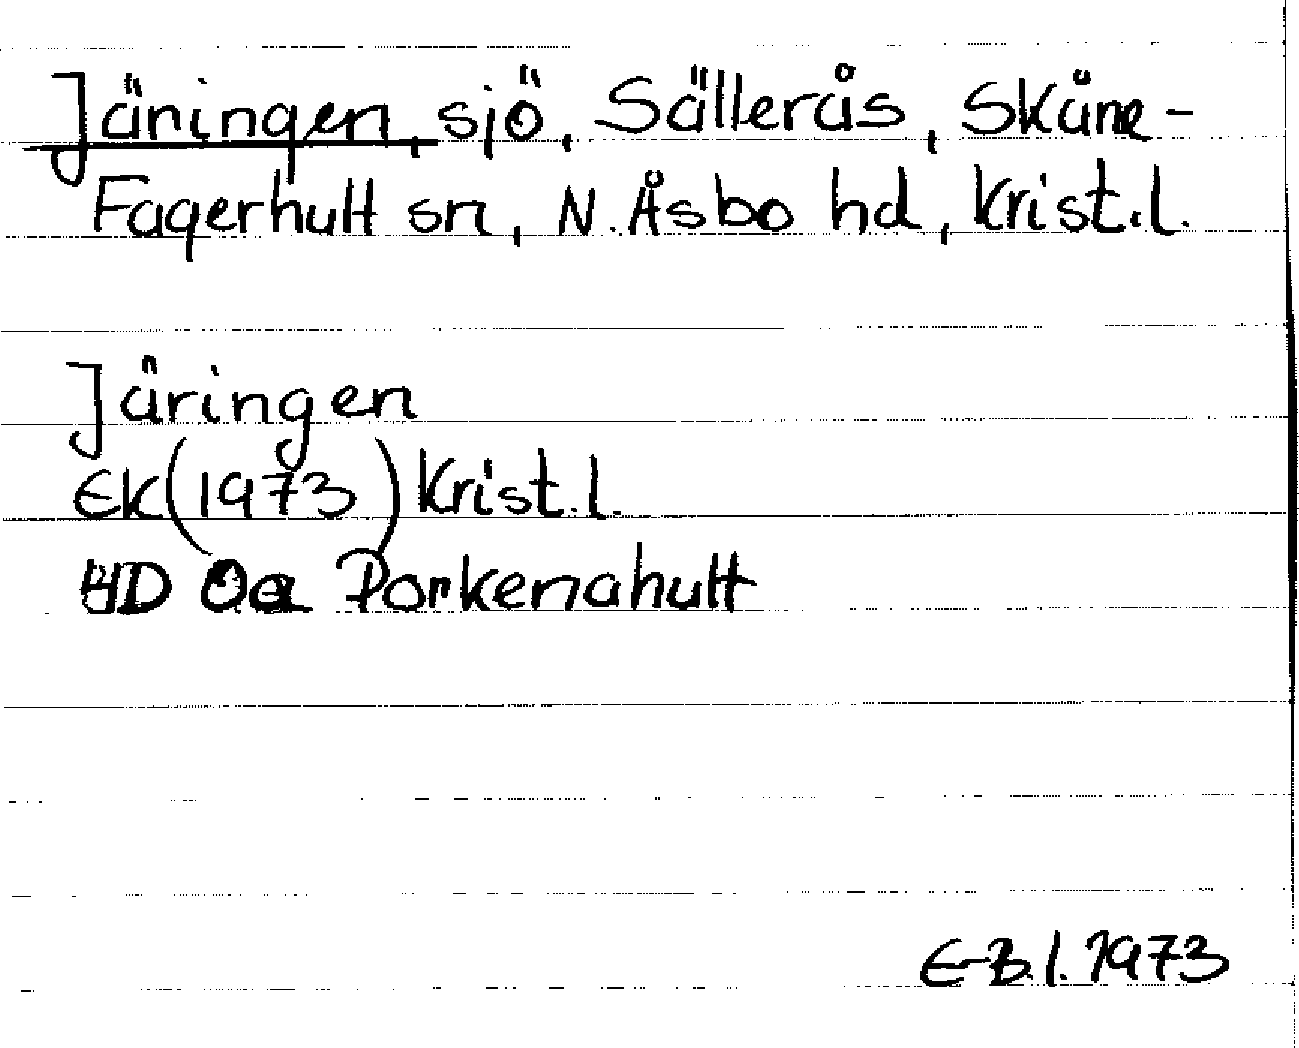 Järingen, sjö, Sällerås, Skåne-
Fagerhult sn, N. Åsbo hd, Krist.l.
Järingen
EK (1973) Krist.l.
HD Porkenahult
E-B.l. 1973